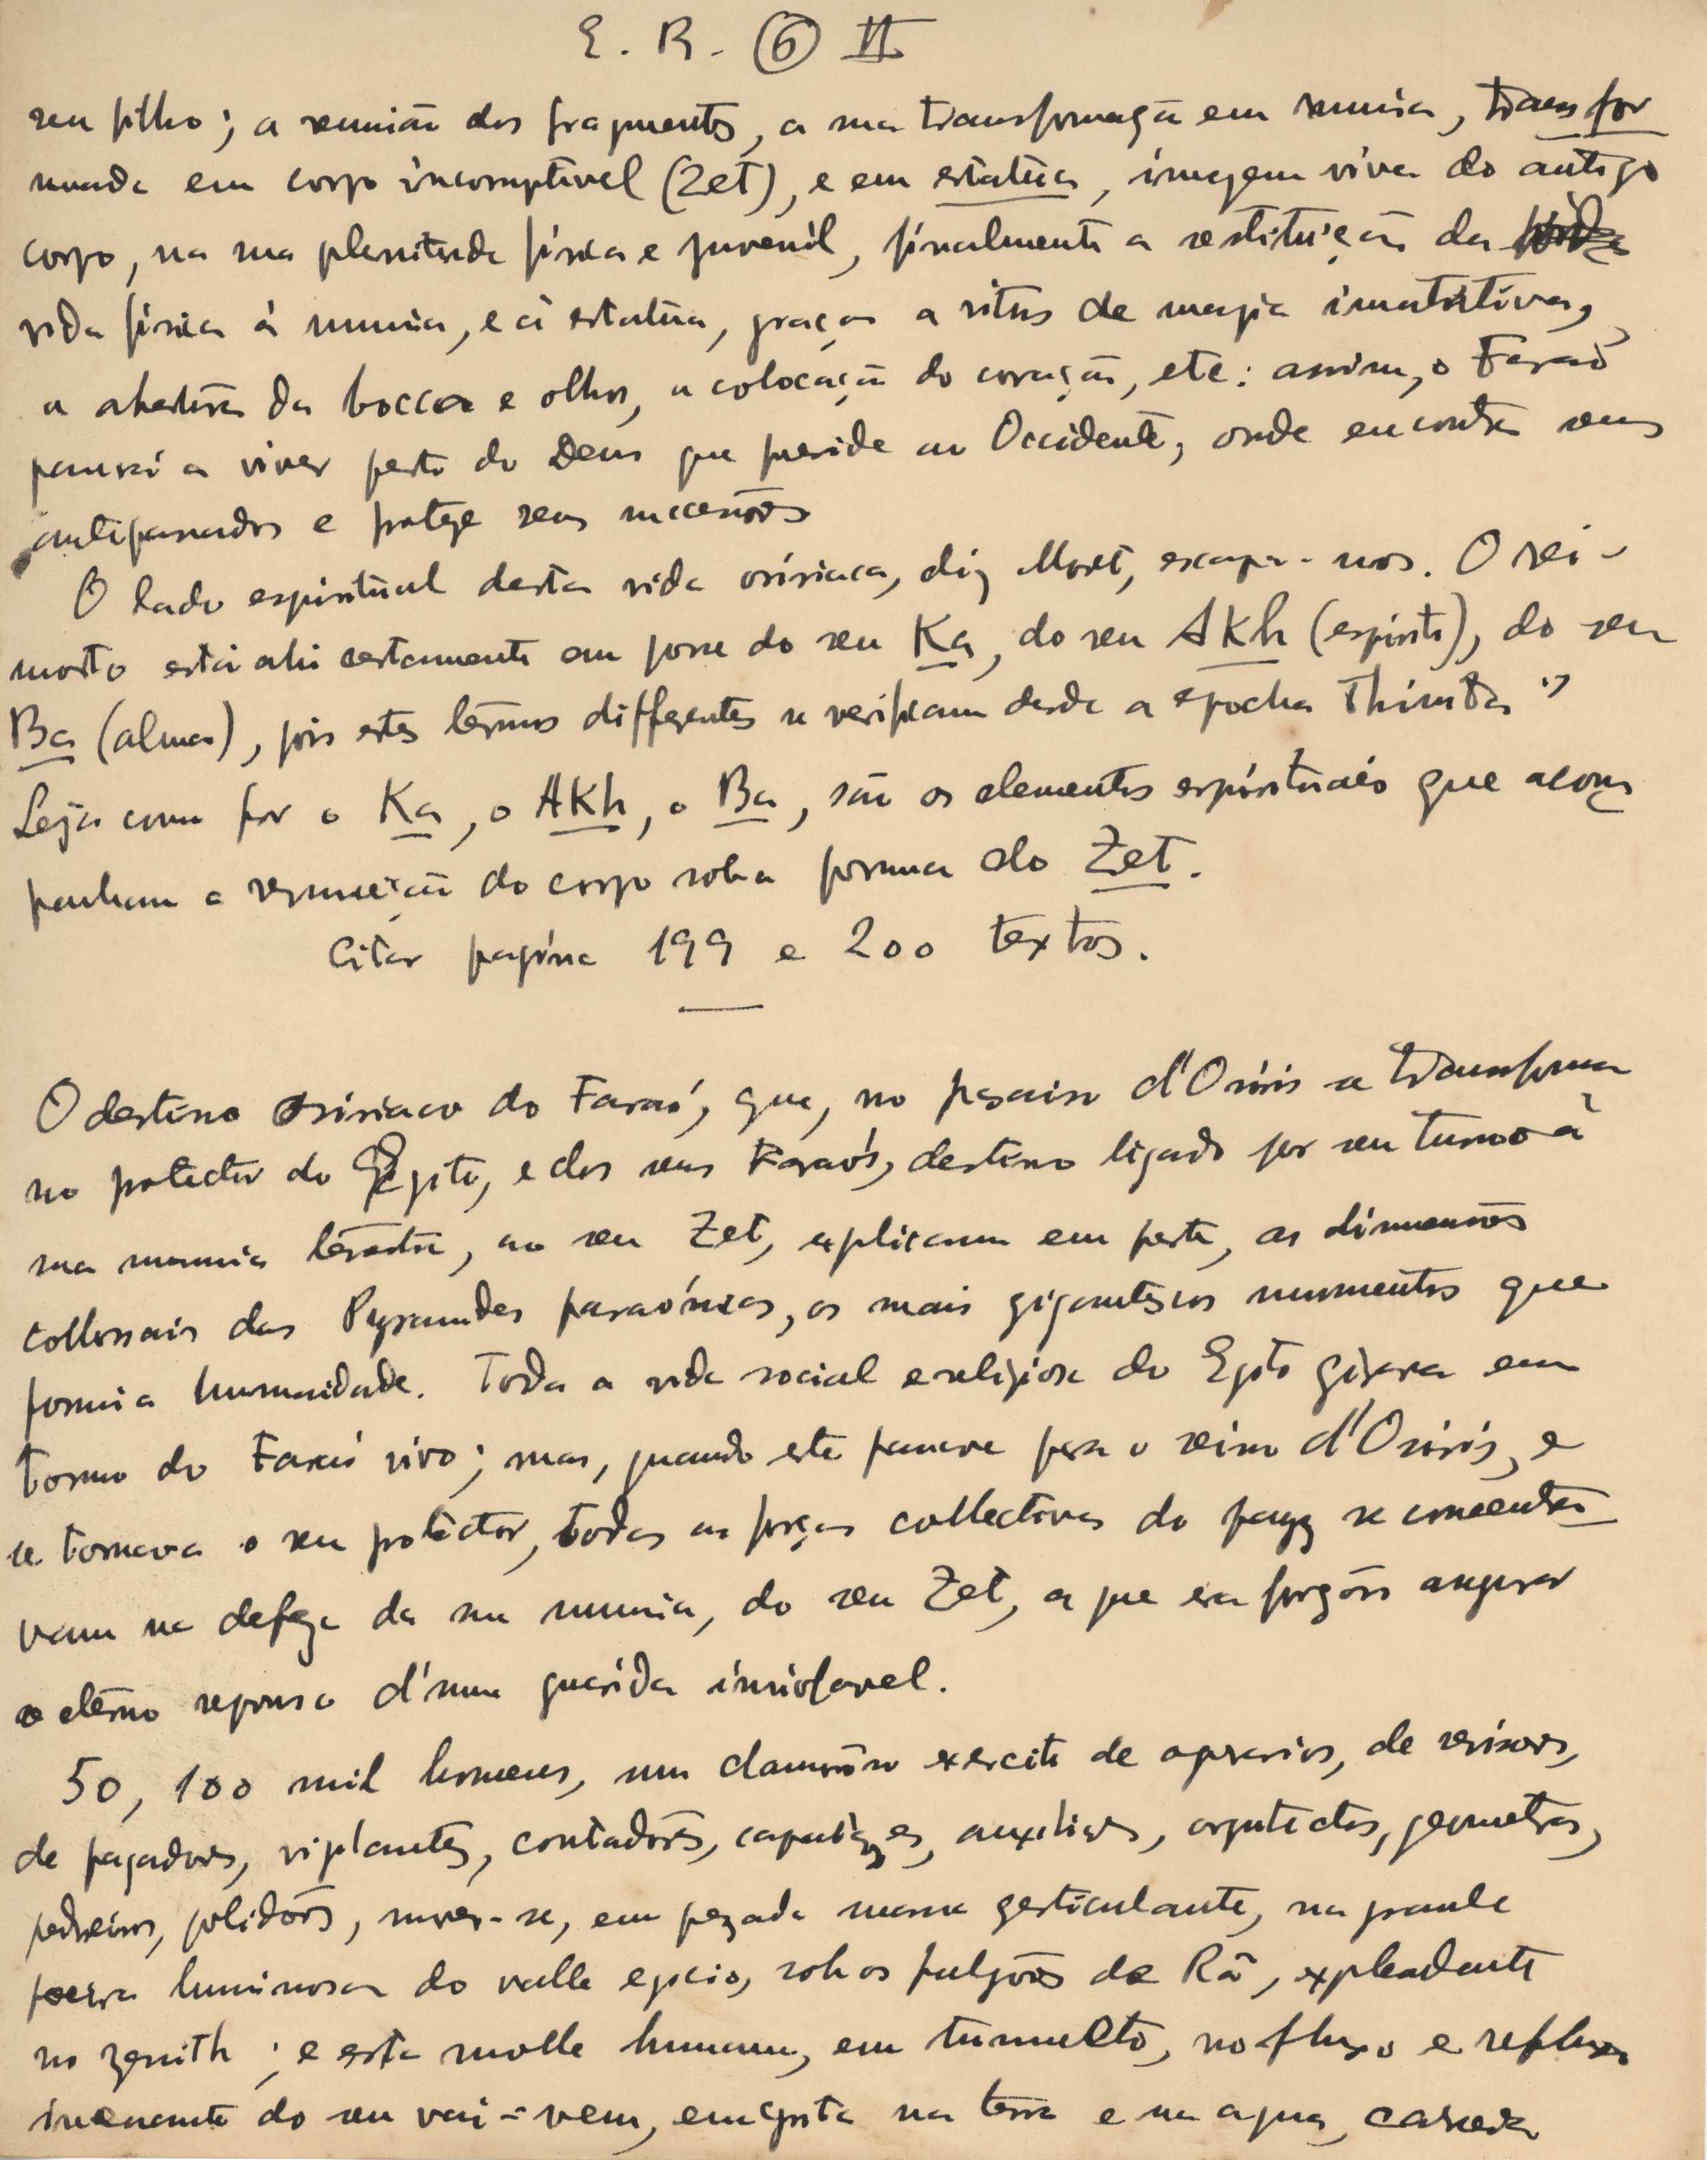 E. R. 6 II
seu filho; a reunião dos fragmentos, a sua transformação em mumia, transfor
mada em corpo incorruptivel (Zet), e em estatua, imagem viva do antigo
corpo, na sua plenitude fisica e juvenil, finalmente a restituição da
vida fisica á mumia, e á estatua, graças a ritos de magia imitativa,
a abertura da bocca e olhos, a colocação do coração, etc: assim, o Faraó
passará a viver perto do Deus que preside ao Occidente, onde encontra seus
antepassados e protege seus sucessores
O lado espiritual desta vida osiriaca, diz Moret, escapa-nos. O rei-
morto está ahi certamente em posse do seu Ka, do seu AKh (espirito), do seu
Ba (alma), pois estes termos differentes se verificam desde a epocha Thinita"
Seja como for o Ka, o AKh, o Ba, são os elementos espirituaes que acom
panham a ressurreição do corpo sob a forma do Zet.
Citar pagina 199 e 200 textos.
O destino osiriaco do Faraó, que, no paraiso d'Osiris se transforma
no protector do Egipto, e dos seus Faraós, destino ligado por seu tumulo á
sua mumia terrestre, ao seu Zet, explicam em parte, as dimensões
collossais das Pyramides faraónicas, os mais gigantescos monumentos que
possui a humanidade. Toda a vida social e religiosa do Egito girava em
torno do Faraó vivo; mas, quando este passava para o reino d'Osiris, e
se tornava o seu protector, todas as forças collectivas do payz se concentra
vam na defeza da sua mumia, do seu Zet, a que era forçoso assegurar
o eterno repouso d'uma guarida inviolavel.
50, 100 mil homens, um clamoroso exercito de operarios, de
de pagadores, vigilantes, contadores, capatazes, auxiliares, arquitectos, geometras,
pedreiros, polidores, move-se, em pezada massa gesticulante, na grande
poeira luminosa do valle egipcio, sob os fulgores de Râ, explendente
no zenith; e esta molle humana, em tumulto, no fluxo e refluxo
incessante do seu vai-e-vem, na terra e na agua,